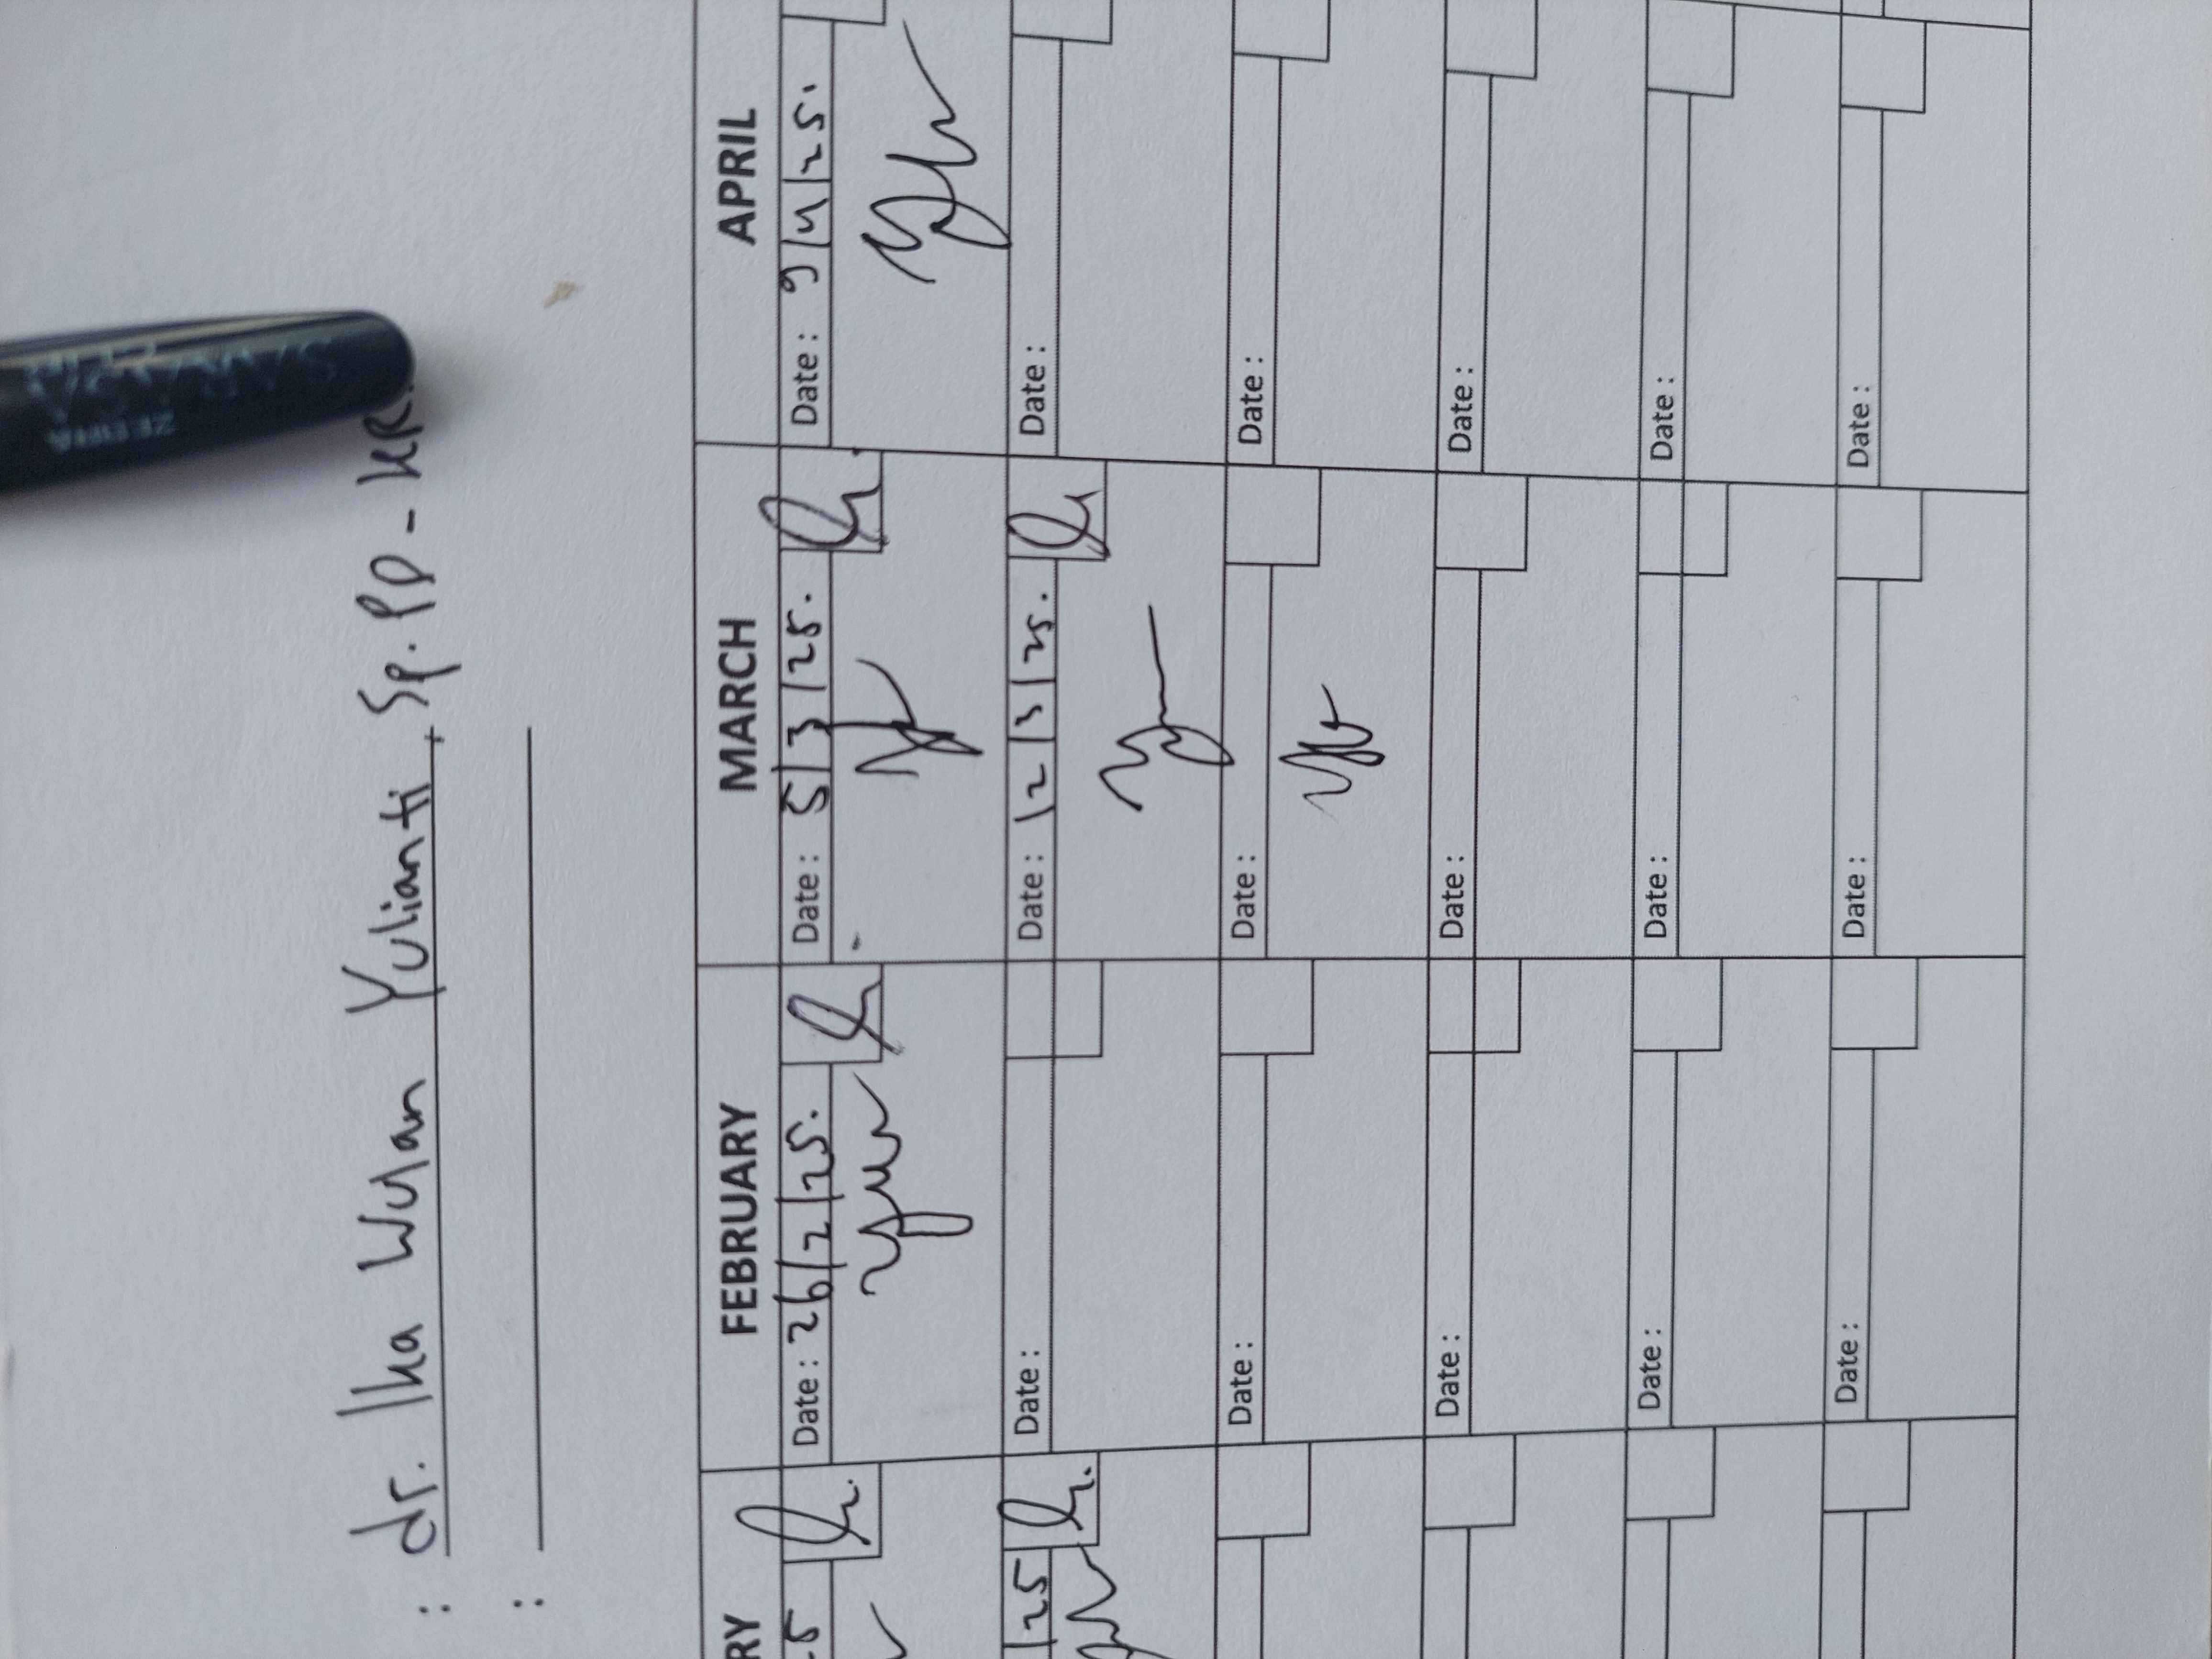 : dr. Ika Wulan Yulianti, Sp. PD - KR
:
RY FEBRUARY MARCH APRIL
Date : 26/2/25. Date : 5/3/25. Date : 9/4/25.
25 Date : Date : 12/3/25. Date :
Date : Date : Date :
Date : Date : Date :
Date : Date : Date :
Date : Date : Date :
ZEBRA